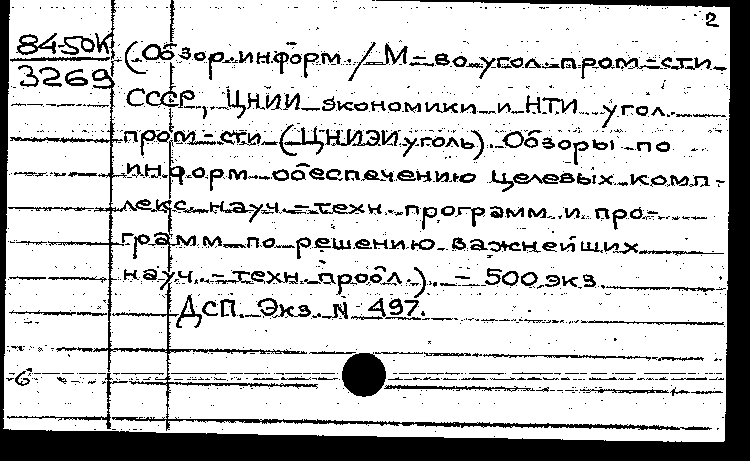 2
8450К
3269
(Обзор. информ. / М-во угол. пром-сти
СССР, ЦНИИ экономики и НТИ угол.
пром-сти (ЦНИЭИуголь). Обзоры по
информ. обеспечению целевых комп-
лекс. науч.-техн. программ и про-
грамм по решению важнейших
науч.-техн. пробл.). - 500 экз.
ДСП. Экз. N 497.
6